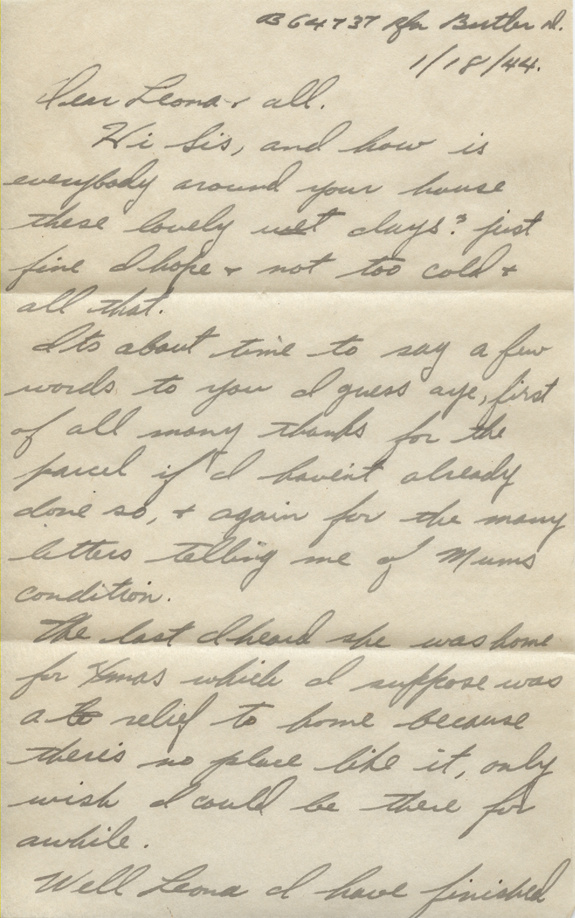 B64737 Rfn Butler D.
1/18/44.
Dear Leona & all.
Hi Sis, and how is
everybody around your house
these lovely wet days? just
fine I hope & not too cold &
all that.
Its about time to say a few
words to you I guess aye, first
of all many thanks for the
parcel if I haven't already
done so, & again for the many
letters telling me of Mums
condition.
The last I heard she was home
for Xmas which I suppose was
a relief to home because
there's no place like it, only
wish I could be there for
awhile.
Well Leona I have finished